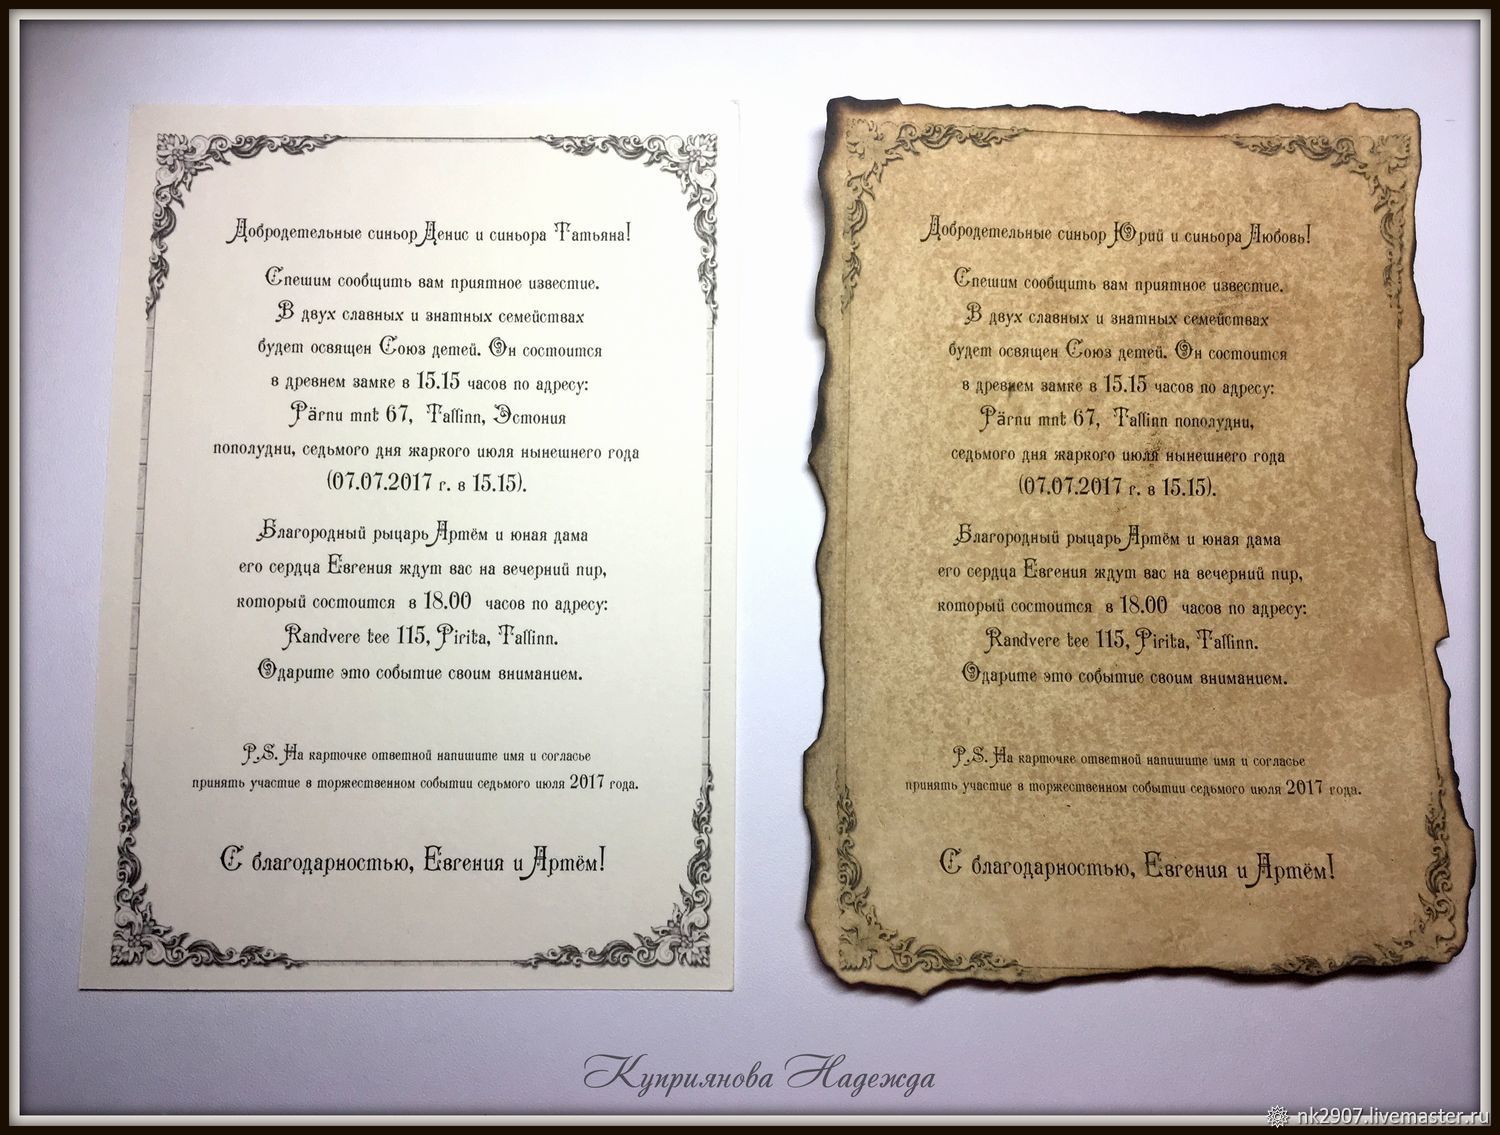 Добродетельные синьор Денис и синьора Татьяна!
Спешим сообщить вам приятное известие.
В двух славных и знатных семействах
будет освящен Союз детей. Он состоится
в древнем замке в 15.15 часов по адресу:
Pärnu mnt 67, Tallinn, Эстония
пополудни, седьмого дня жаркого июля нынешнего года
(07.07.2017 г. в 15.15).
Благородный рыцарь Артём и юная дама
его сердца Евгения ждут вас на вечерний пир,
который состоится в 18.00 часов по адресу:
Randvere tee 115, Pirita, Tallinn.
Одарите это событие своим вниманием.
P.S. На карточке ответной напишите имя и согласье
принять участие в торжественном событии седьмого июля 2017 года.
С благодарностью, Евгения и Артём!
Добродетельные синьор Юрий и синьора Любовь!
Спешим сообщить вам приятное известие.
В двух славных и знатных семействах
будет освящен Союз детей. Он состоится
в древнем замке в 15.15 часов по адресу:
Pärnu mnt 67, Tallinn пополудни,
седьмого дня жаркого июля нынешнего года
(07.07.2017 г. в 15.15).
Благородный рыцарь Артём и юная дама
его сердца Евгения ждут вас на вечерний пир,
который состоится в 18.00 часов по адресу:
Randvere tee 115, Pirita, Tallinn.
Одарите это событие своим вниманием.
P.S. На карточке ответной напишите имя и согласье
принять участие в торжественном событии седьмого июля 2017 года.
С благодарностью, Евгения и Артём!
Куприянова Надежда
nk2907.livemaster.ru